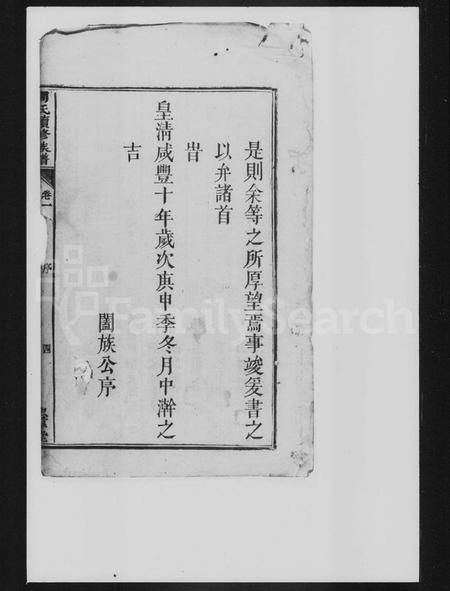 是則余等之所厚望焉事竣爰書之
以弁諸首
旹
皇清咸豐十年歲次庚申季冬月中澣之
吉
闔族公序
氏續修族譜
卷一
序
四
堂
FamilySearch